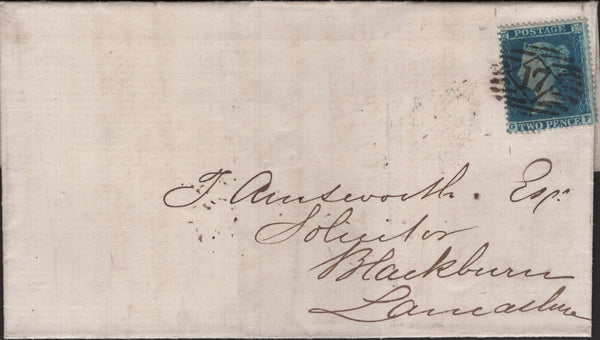 POSTAGE
17
TWO PENCE
T. Ainsworth. Esqr
Solicitor
Blackburn
Lancashire